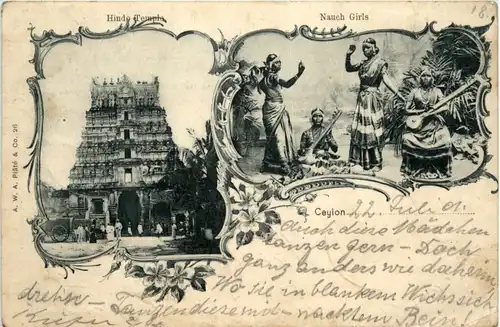 Hindo Temple
Nauch Girls
A. W. A. Plâté & Co. 26
Ceylon 22 Juli
durch diese Mädchen
tanzen gern - Doch
ganz anders wie daheim
Wo sie in blankem Wichs sich
drehn - Tanzen diese mit
nacktem Bein!